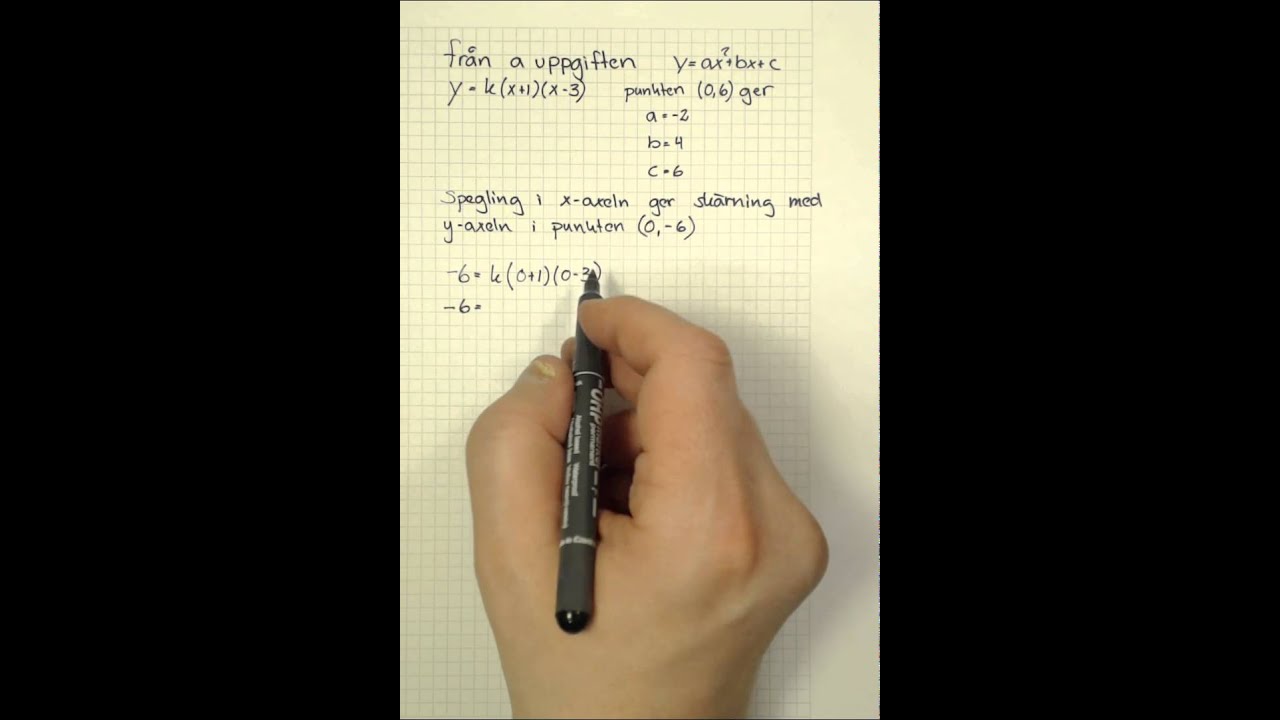 från a uppgiften y=ax²+bx+c
y=k(x+1)(x-3) punkten (0,6) ger
a=-2
b=4
c=6
Spegling i x-axeln ger skärning med
y-axeln i punkten (0,-6)
-6=k(0+1)(0-3)
-6=
OHP
permanent
Waterproof